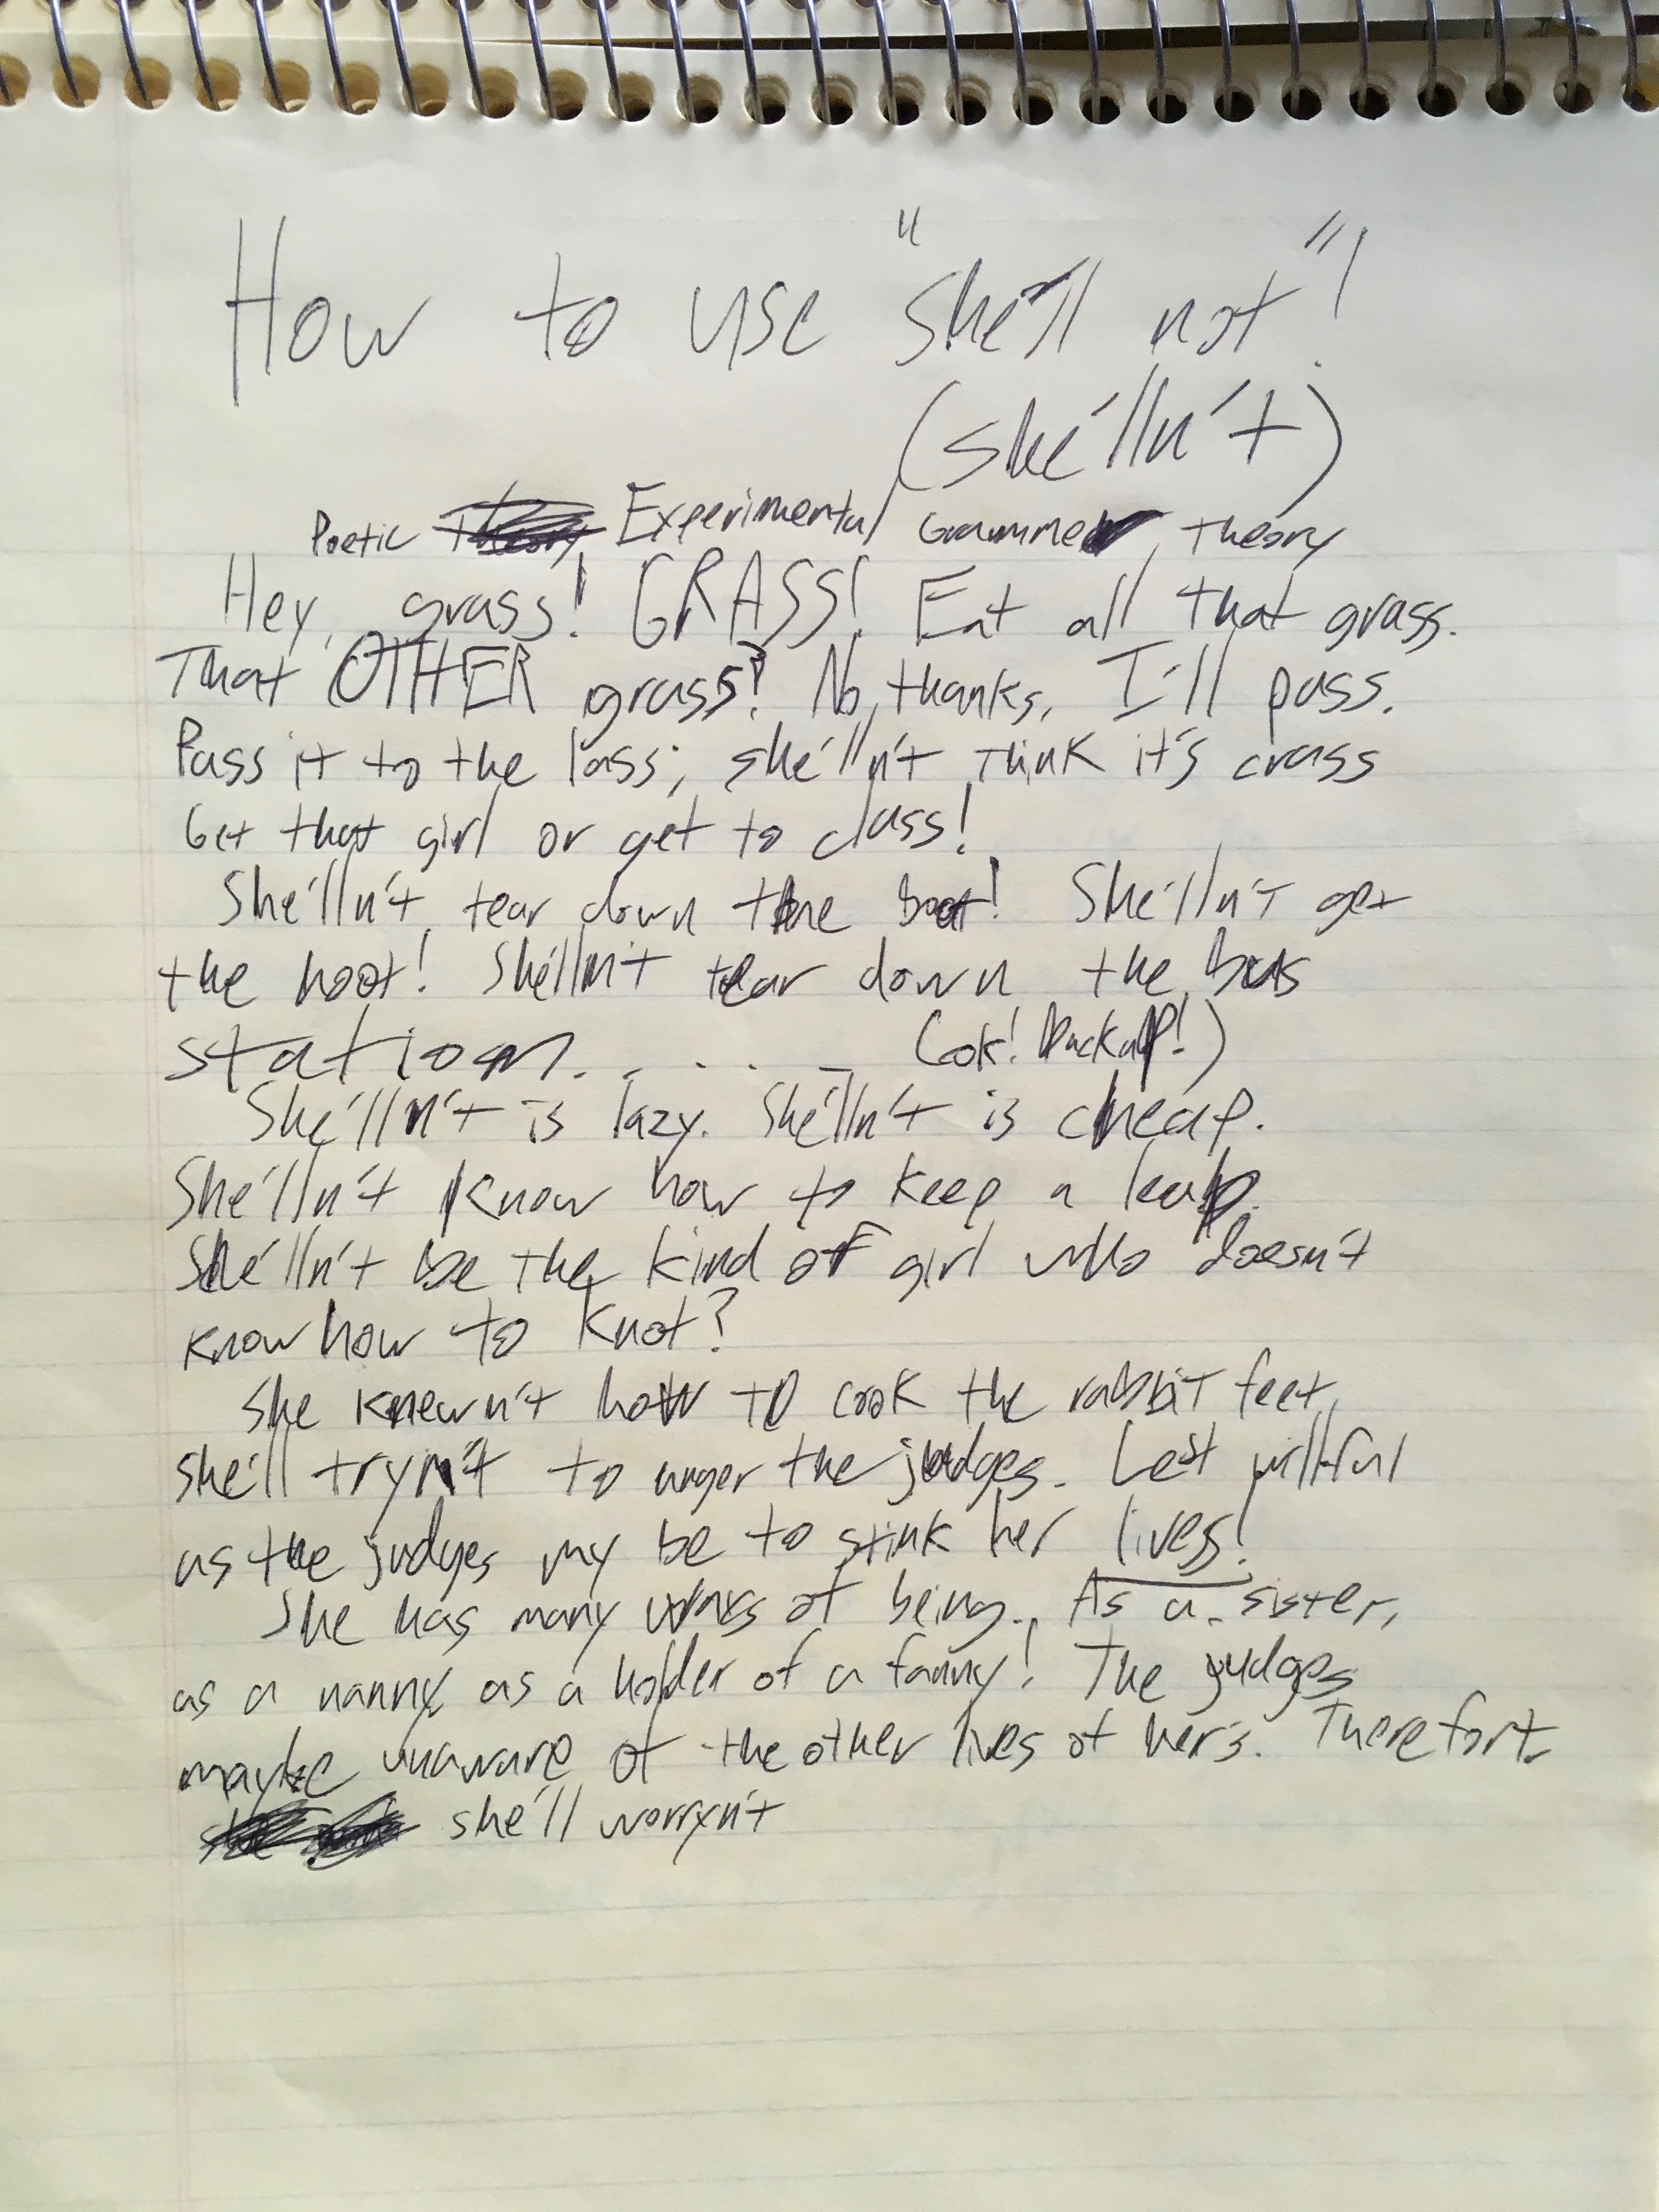 How to use "she'll not"!
(she'lln't)
Poetic Experimental Grammer Theory
Hey, grass! GRASS! Eat all that grass.
That OTHER grass? No, thanks, I'll pass.
Pass it to the lass; she'lln't think it's crass
Get that girl or get to class!
She'lln't tear down the boat! She'lln't get
the hoot! She'lln't tear down the bus
station...... (ok! Pack up!)
She'lln't is lazy. She'lln't is cheap.
She'lln't know how to keep a leap.
She'lln't be the kind of girl who doesn't
know how to knot?
She knewn't how to cook the rabbit feet,
she'll tryn't to anger the judges. Lest willful
as the judges my be to stink her lives!
She has many ways of being. As a sister,
as a nanny, as a holder of a fanny! The judges
maybe unaware of the other lives of her's. Therefore
she'll worryn't